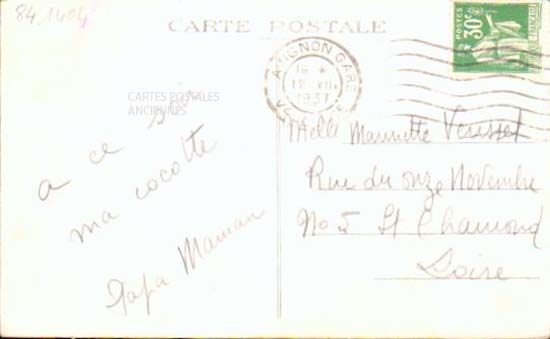 84 1404
CARTE POSTALE
POSTES
30c
AVIGNON GARE
16 *
12 VII
1937
CARTES POSTALES
ANCIENNES
a ce soir
ma cocotte
Papa Maman
Melle Mannette
Rue du onze Novembre
No 5 St Chamond
Loire